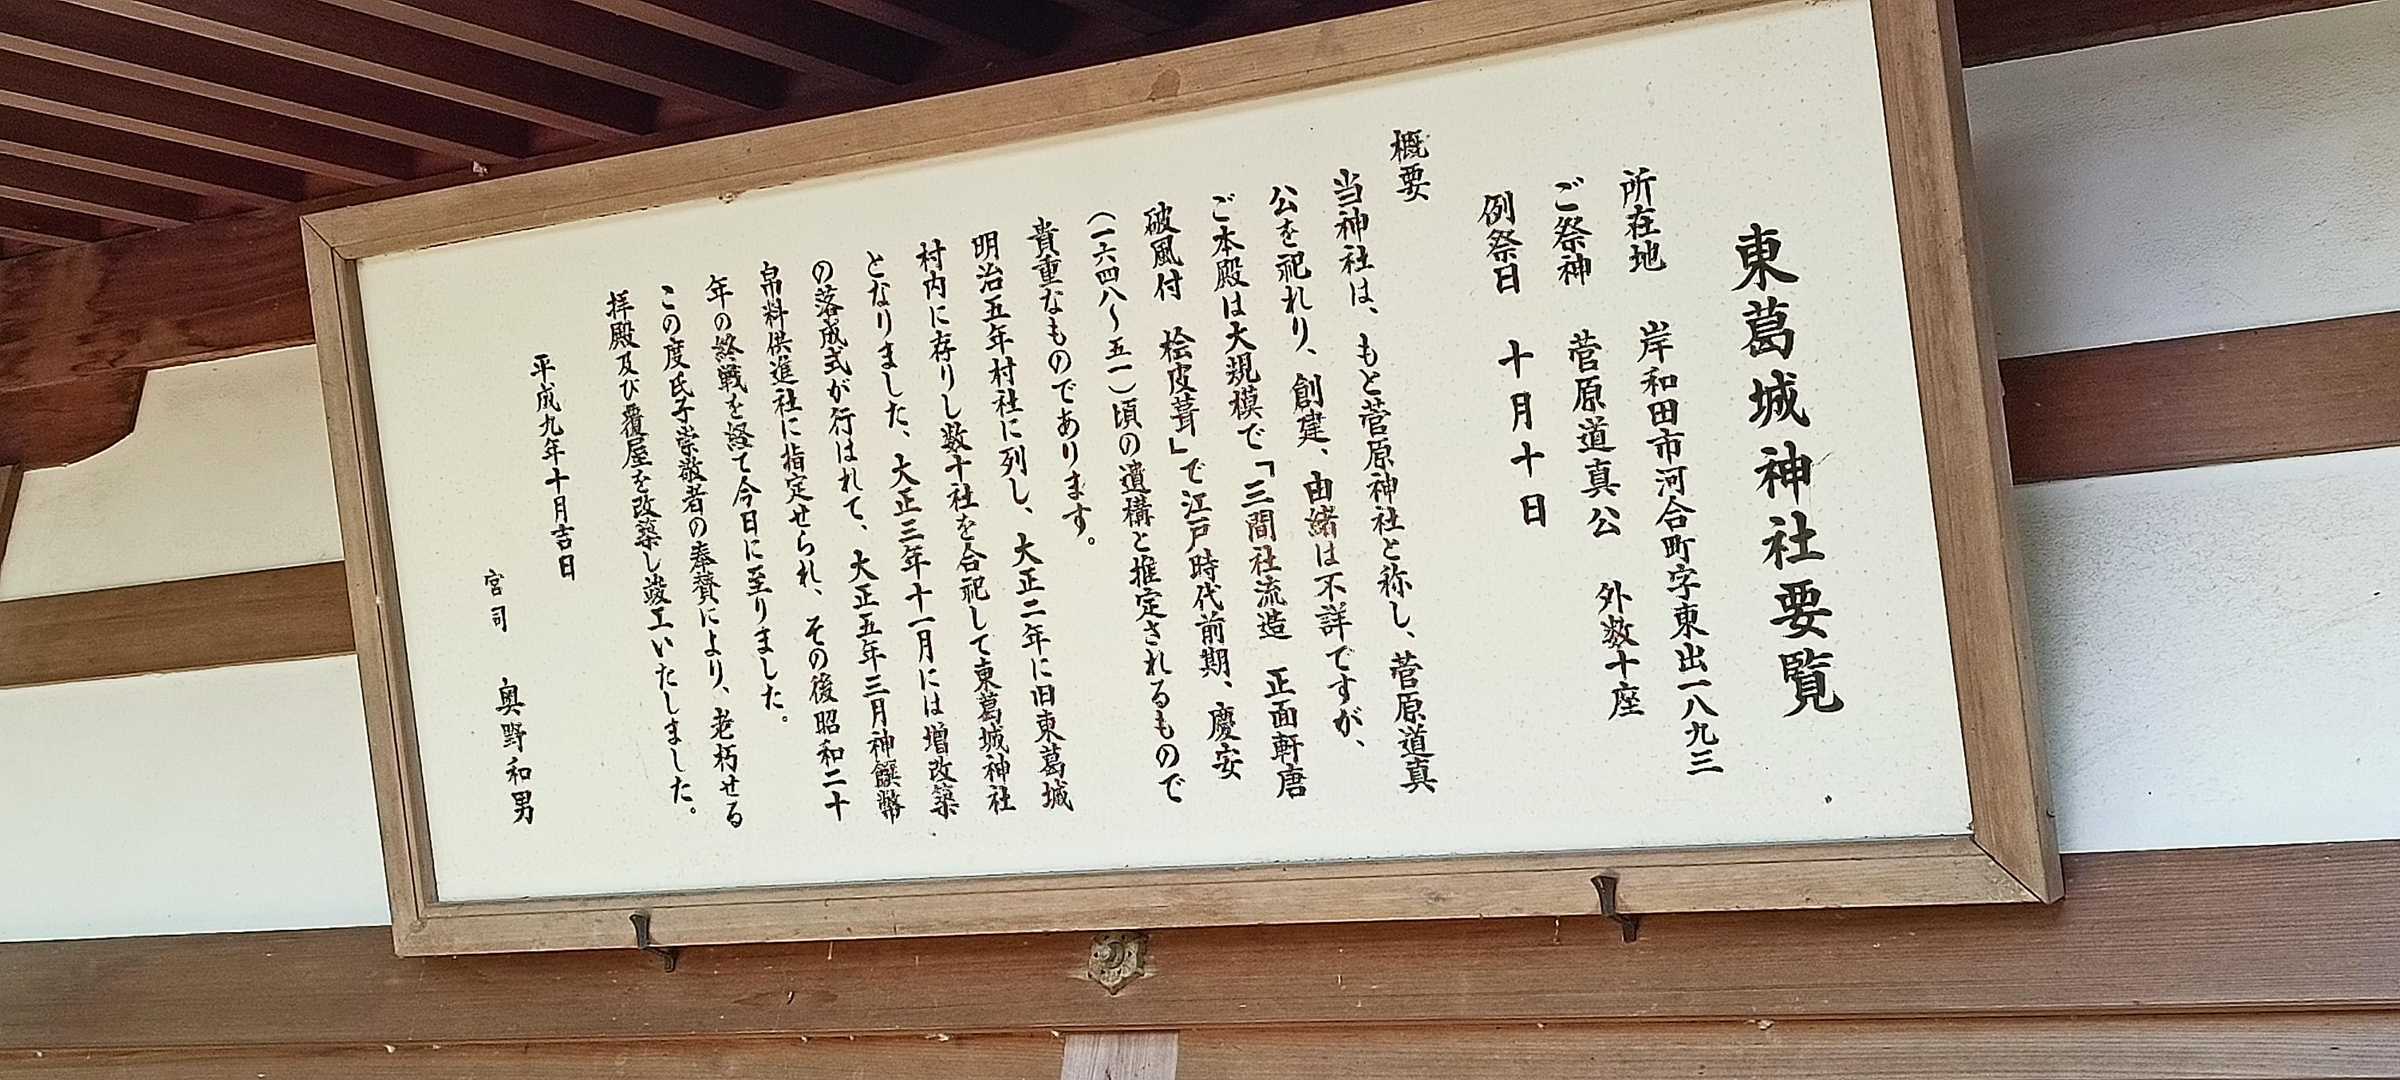 東葛城神社要覧
所在地　岸和田市河合町字東出一八九三
ご祭神　菅原道真公　外数十座
例祭日　十月十日
概要
当神社は、もと菅原神社と称し、菅原道真
公を祀れり、創建、由緒は不詳ですが、
ご本殿は大規模で「三間社流造　正面軒唐
破風付　桧皮葺」で江戸時代前期、慶安
（一六四八～五一）頃の遺構と推定されるもので
貴重なものであります。
明治五年村社に列し、大正二年に旧東葛城
村内に存りし数十社を合祀して東葛城神社
となりました、大正三年十一月には増改築
の落成式が行はれて、大正五年三月神饌幣
帛料供進社に指定せられ、その後昭和二十
年の終戦を経て今日に至りました。
この度氏子崇敬者の奉賛により、老朽せる
拝殿及び覆屋を改築し竣工いたしました。
平成九年十月吉日
宮司　奥野和男